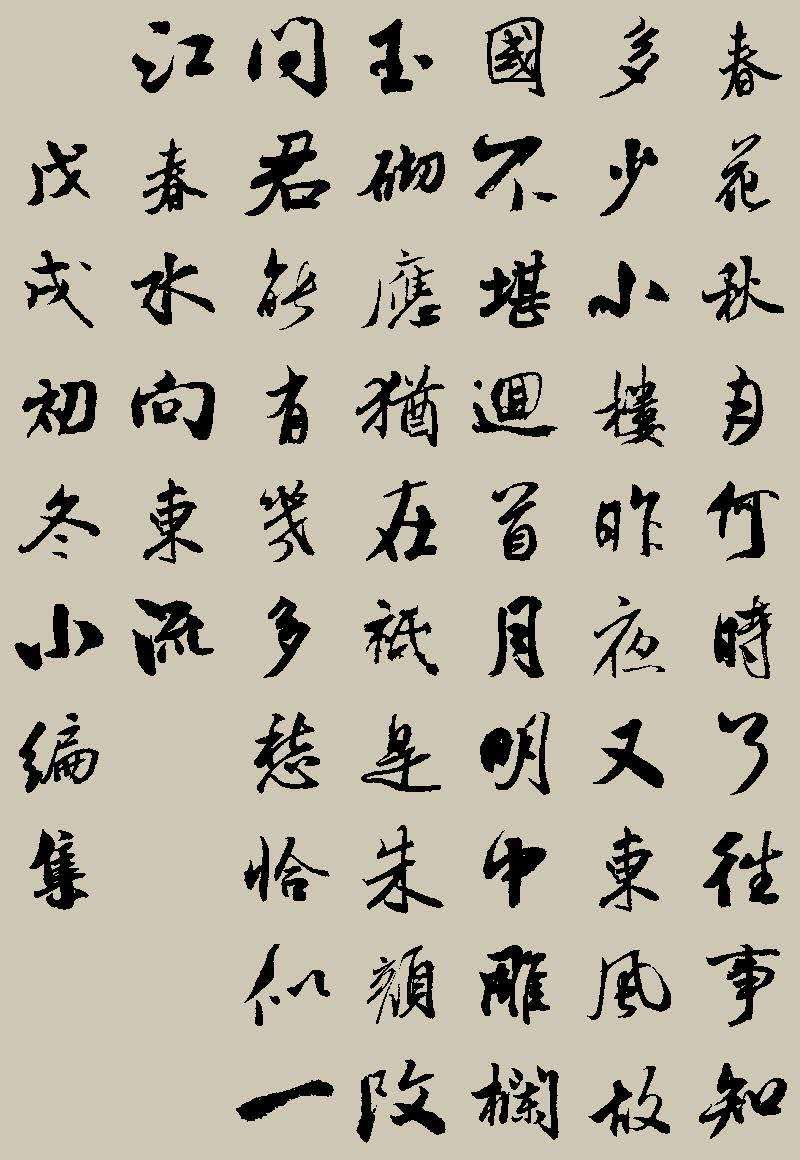 春花秋月何時了往事知
多少小樓昨夜又東風故
國不堪迴首月明中雕欄
玉砌應猶在祇是朱顏改
問君能有幾多愁恰似一
江春水向東流
戊戌初冬小編集